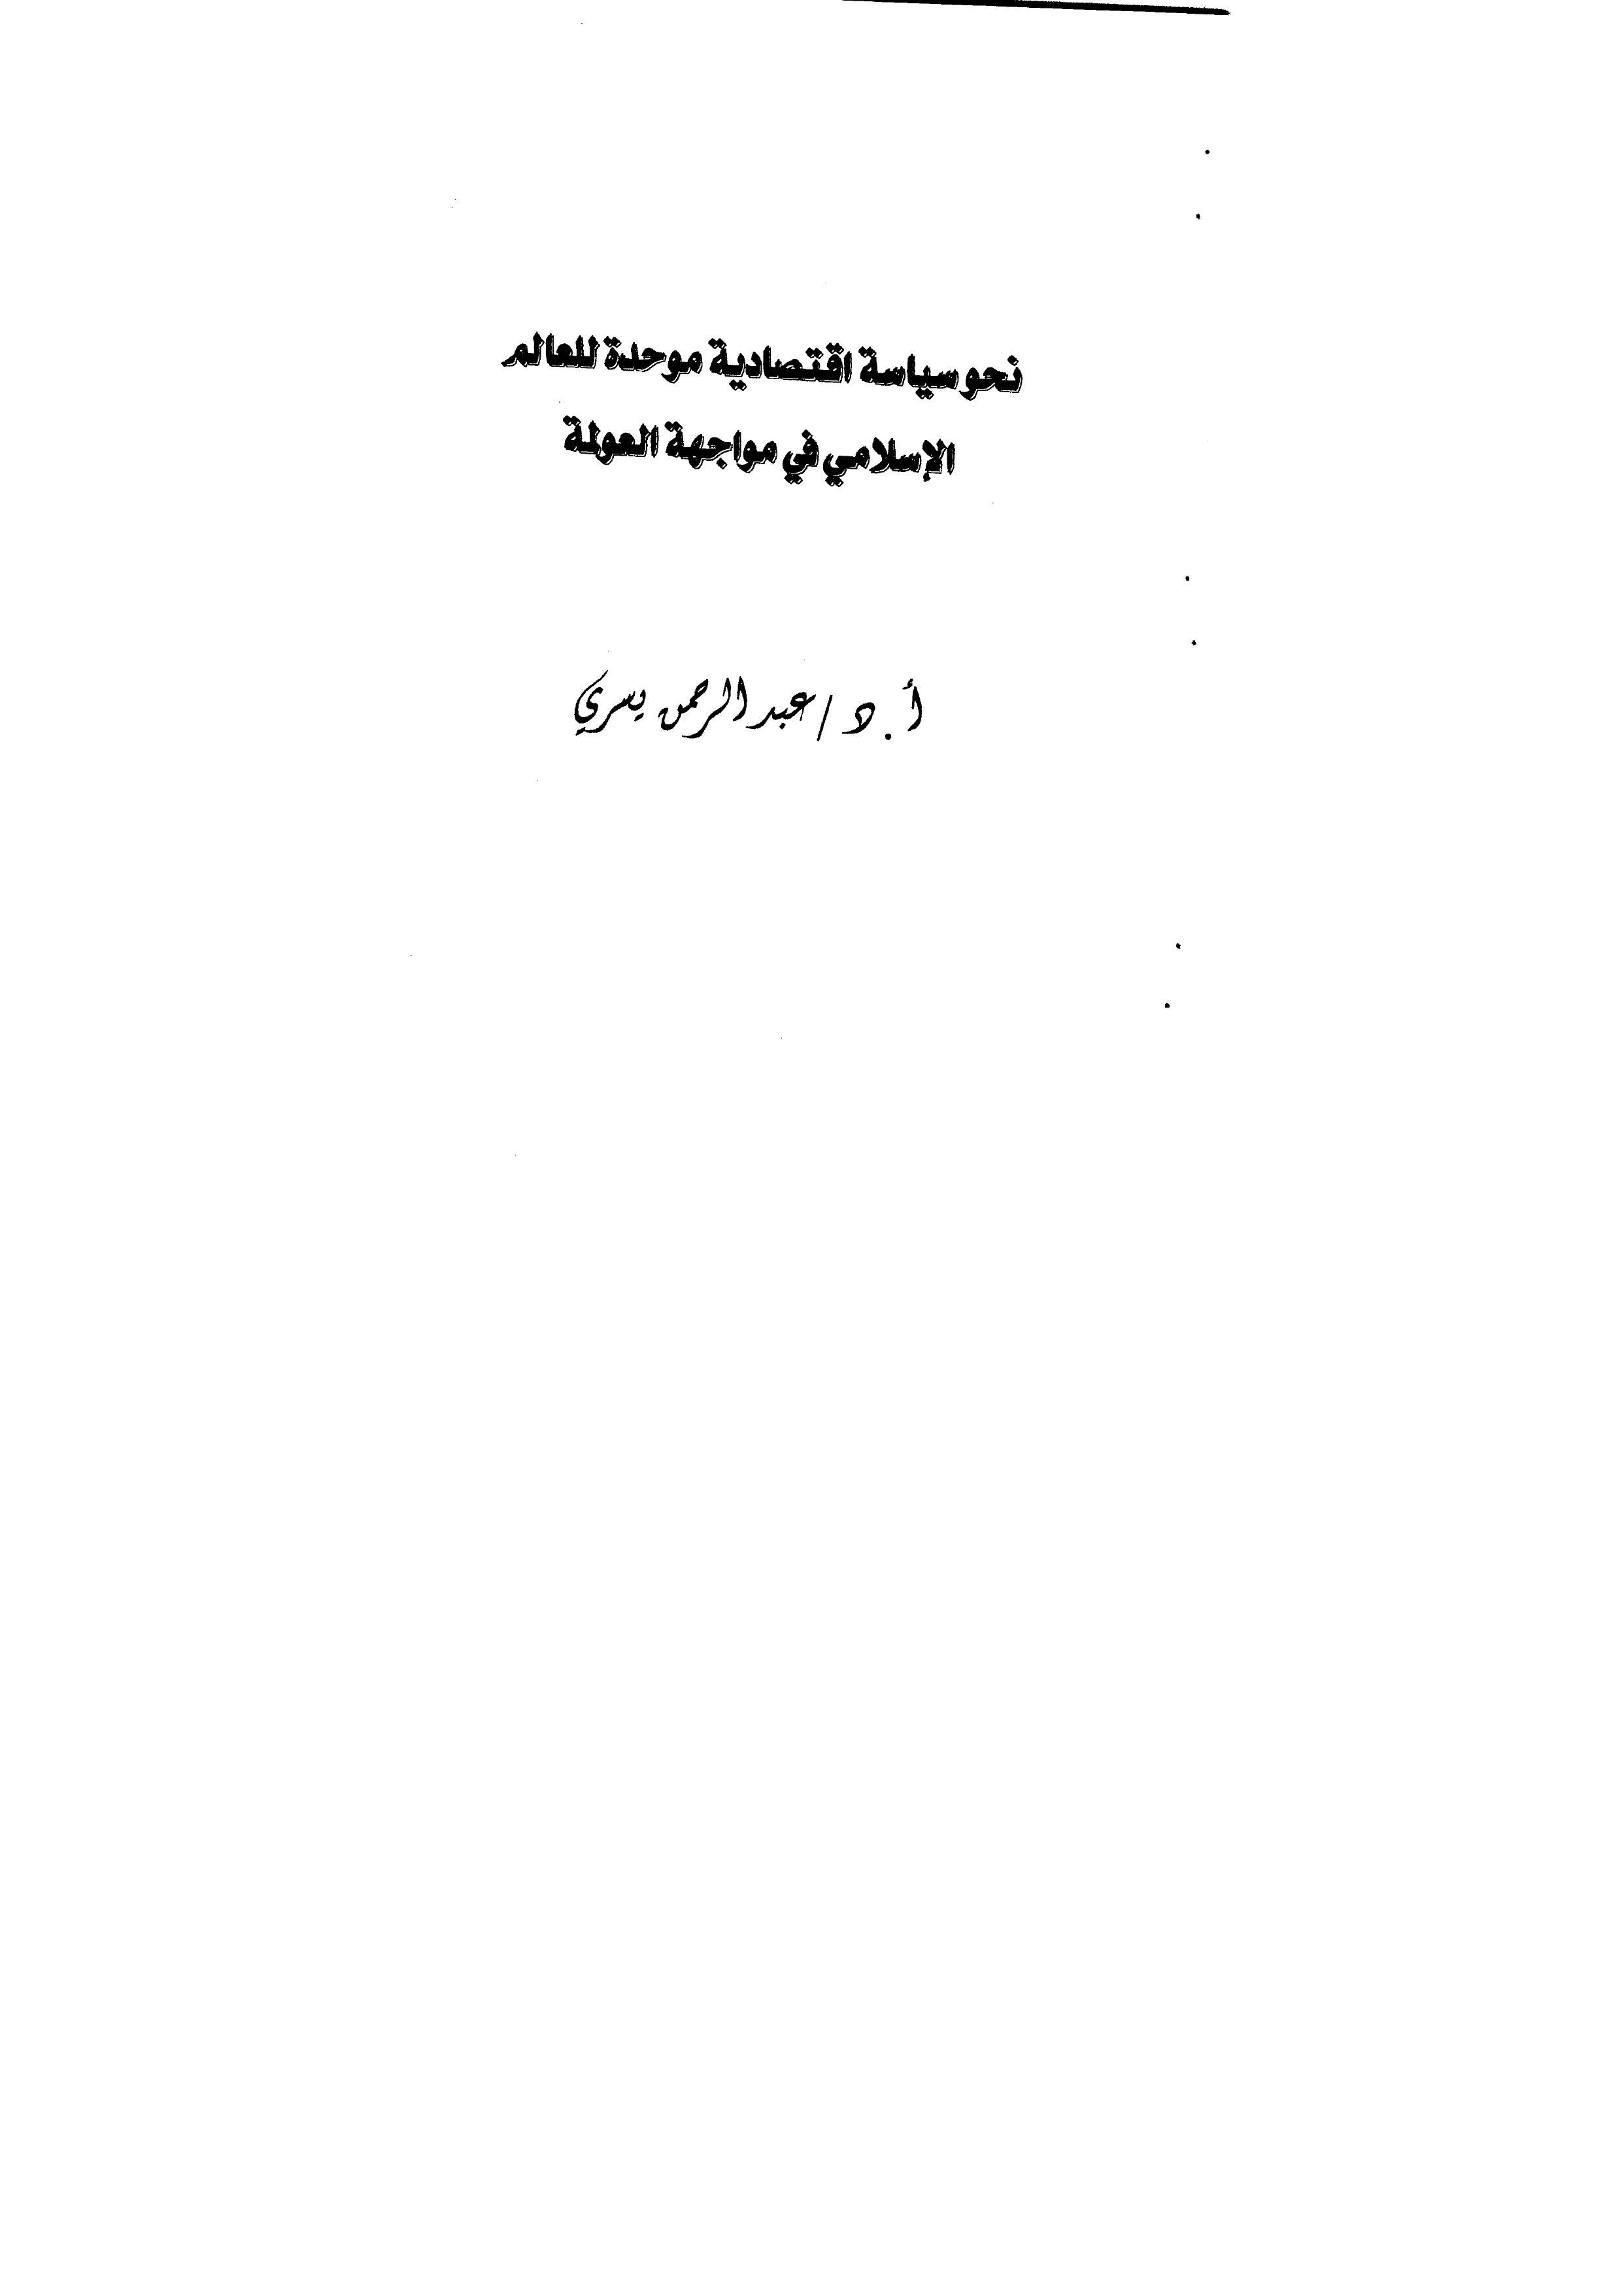 نحو سياسة اقتصادية موحدة للعالم
الإسلامي في مواجهة العولمة
أ.د/عبد الرحمن يسري